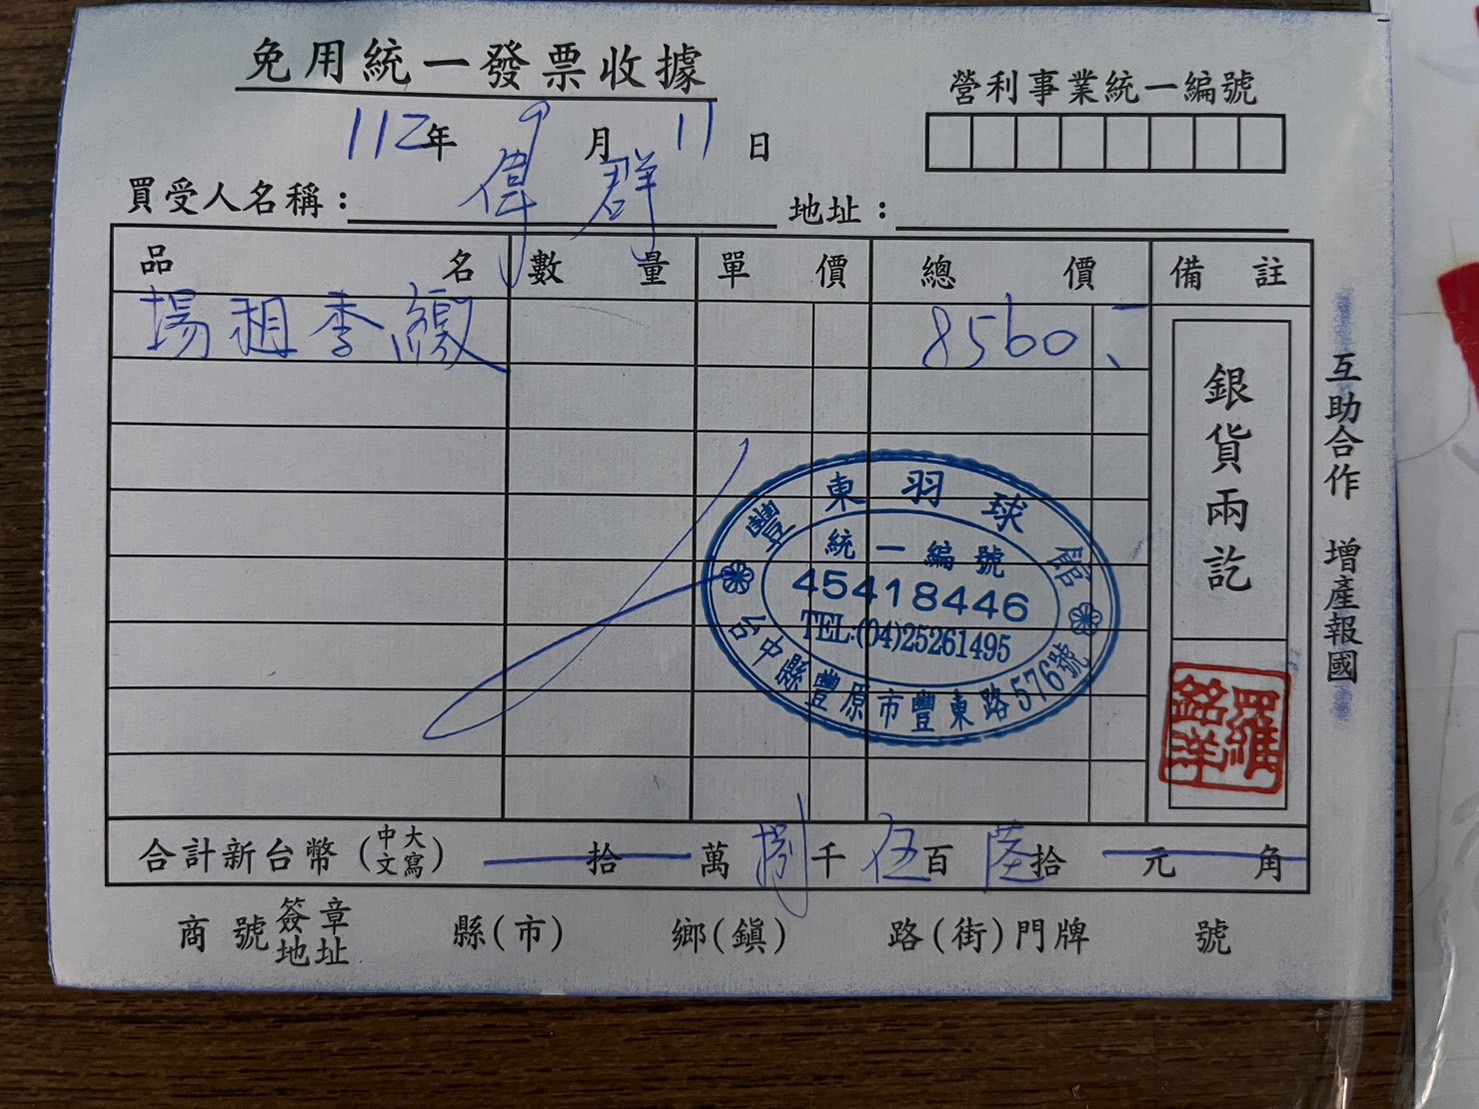 免用統一發票收據
營利事業統一編號
112年 9月 11日
買受人名稱：偉群 地址：
品名 數量 單價 總價 備註
場租季繳 8560、-
銀貨兩訖
豐東羽球館
統一編號
45418446
TEL:(04)25261495
台中縣豐原市豐東路576號
羅銘洋
合計新台幣（中文大寫） 拾 萬 捌千 伍百 陸拾 元 角
商號簽章地址 縣(市) 鄉(鎮) 路(街)門牌 號
互助合作 增產報國